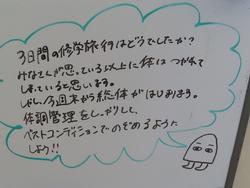 3日間の修学旅行はどうでしたか？
みなさんが思っている以上に体はつかれて
しまっていると思います。
しかし、今週末から総体がはじまります。
体調管理をしっかりして、
ベストコンディションでのぞめるように
しよう!!